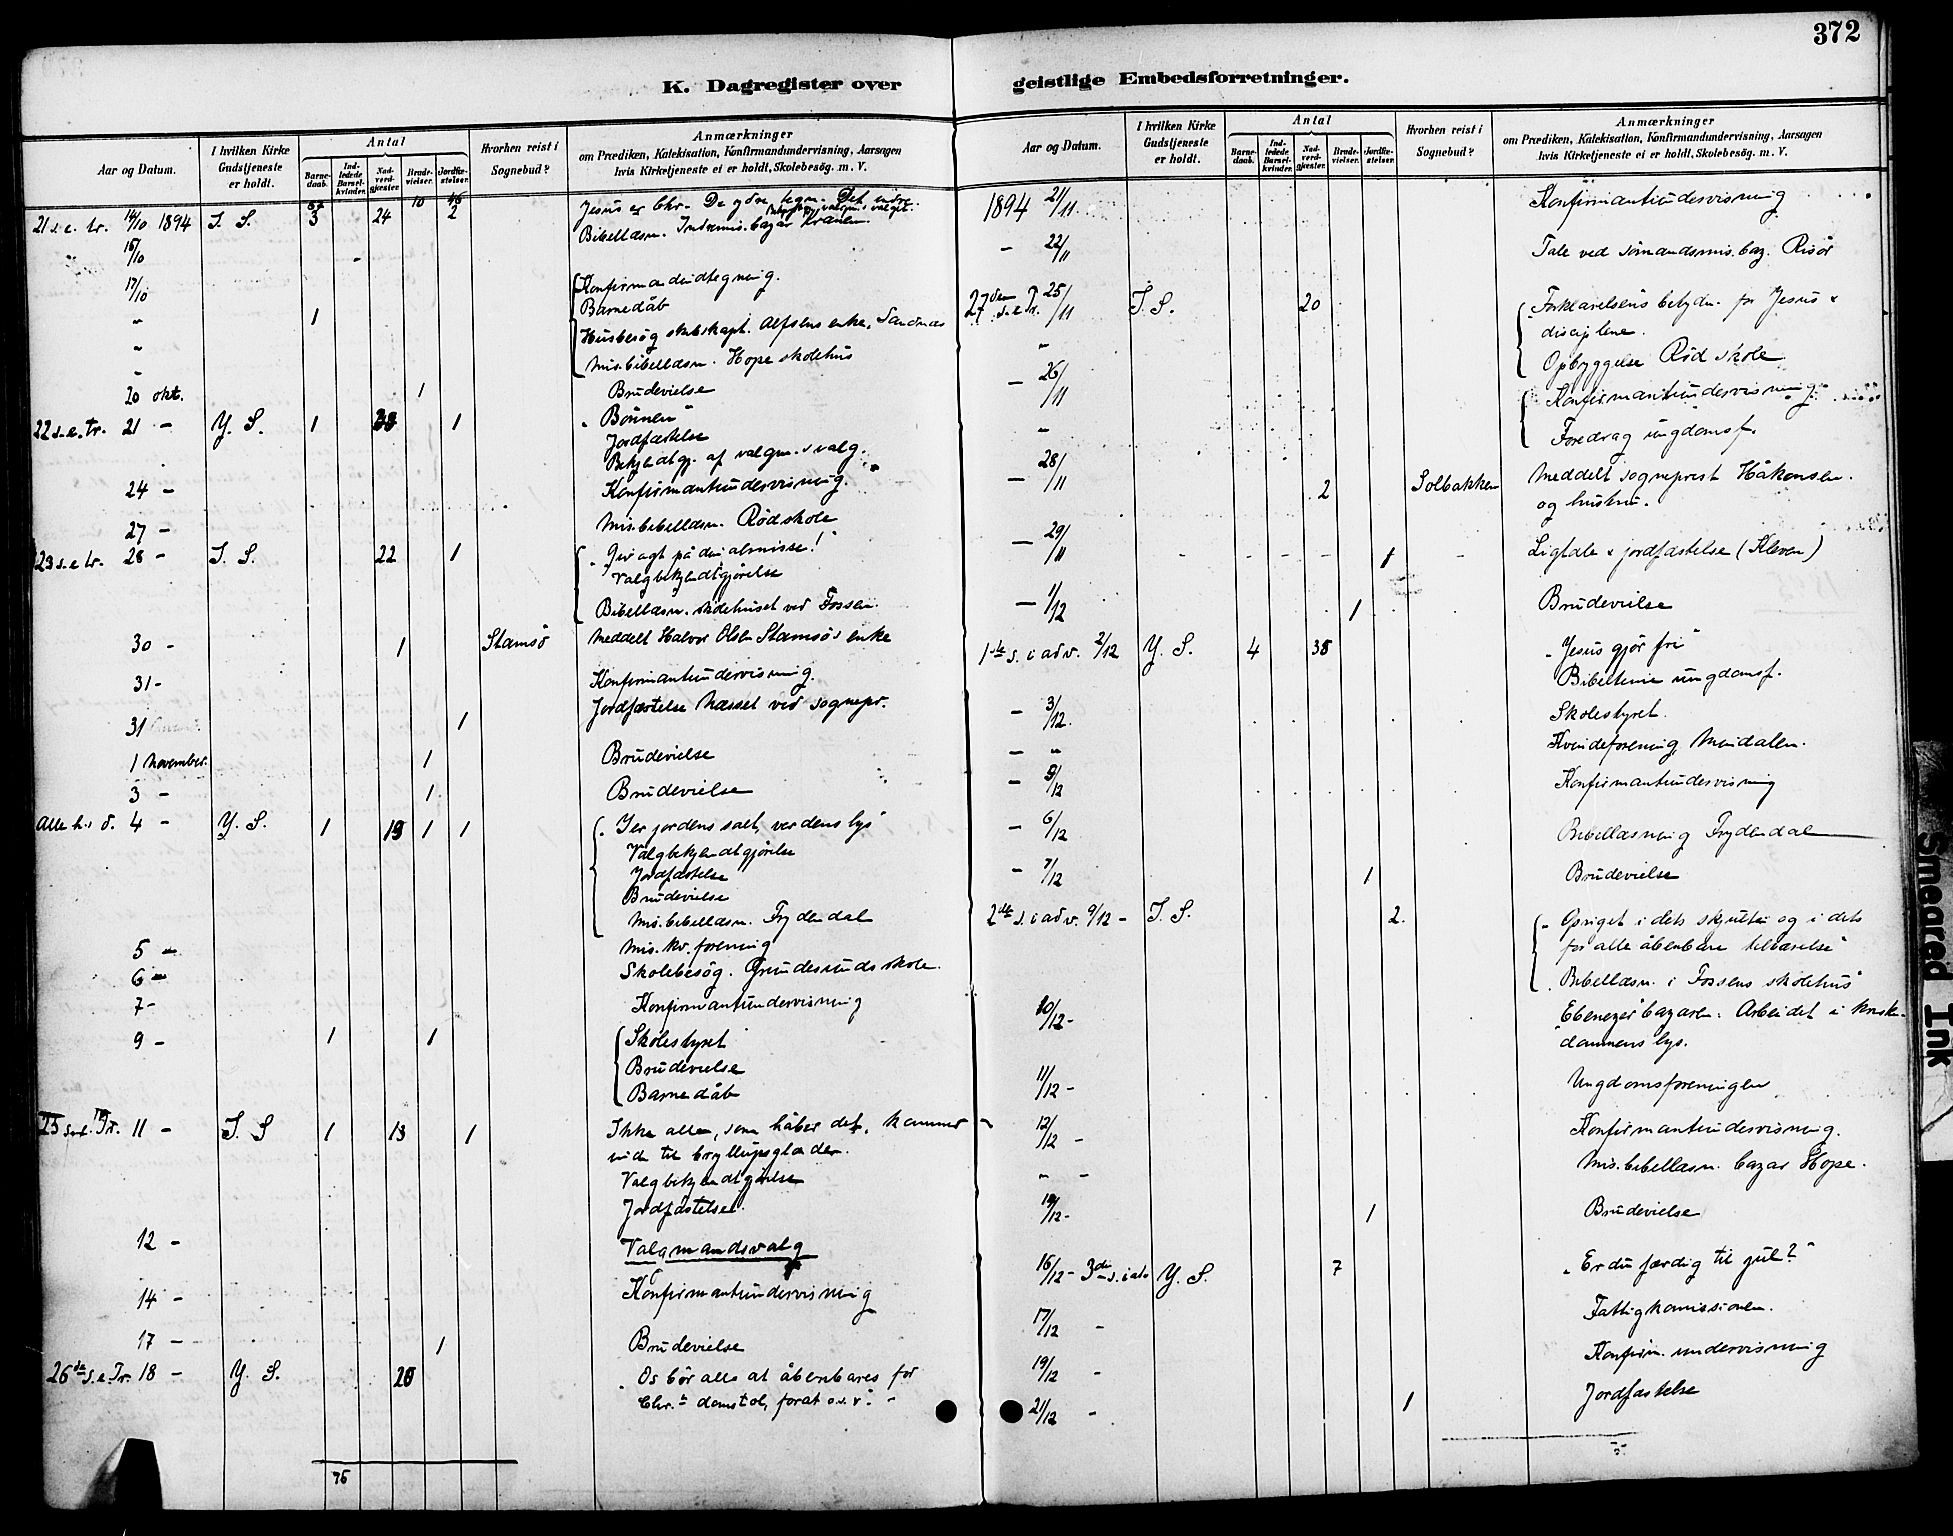 372
K. Dagregister over geistlige Embedsforretninger.
Aar og Datum.
I hvilken Kirke Gudstjeneste er holdt.
Antal
Barnedaab.
Indledede Barselkvinder.
Nadverdgjester.
Brudevielser.
Jordfæstelser.
Hvorhen reist i Sognebud?
Anmærkninger
om Prædiken, Katekisation, Konfirmandundervisning, Aarsagen
hvis Kirketjeneste ei er holdt, Skolebesög. m. V.
21 s.e. tr. 14/10 1894 S. 3 24 2 Jesus er Chr. De ydre tegn. Det indre
Bibellæsn. Indremis. bazar Kranen
/10
17/10 Konfirmandindtegning.
" 1 Barnedåb
" Husbesøg skibskapt. Alfsens enke, Sandnæs
" Mis. bibellæsn. Hope skolehus
20 okt. 1 Brudevielse
22 s.e. tr. 21 - Y. S. 1 1 "Bønnen"
Jordfæstelse
Bekjendtgj. af valgm.s valg.
24 - Konfirmantundervisning.
27 - Mis. bibellæsn. Rød skole
23 s.e. tr. 28 - S. 22 1 "Giv agt på din almisse!"
Valgbekjendtgjørelse
Bibellæsn. skolehuset ved Fossen.
30 - 1 Stamsø Meddelt Halvor Olsen Stamsøs enke
31 - Konfirmantundervisning.
31 1 Jordfæstelse Næsset ved sognepr.
1 november. 1 Brudevielse
3 - 1 Brudevielse
Alle h. d. 4 - Y. S. 1 19 1 1 "I er jordens salt, verdens lys"
Valgbekjendtgjørelse
Jordfæstelse
Brudevielse
Mis. bibellæsn. Frydendal
5 - Mis. kv. forening
6 - Skolebesøg. Grundesunds skole.
7 - Konfirmantundervisning
9 - 1 1 Skolestyret
Brudevielse
Barnedåb
25 s.e. Tr. 11 - S. 1 13 1 Ikke alle, som håber det, kommer
ind til bryllupsglæden.
Valgbekjendtgjørelse
Jordfæstelse.
12 - Valgmandsvalg
14 - Konfirmantundervisning
17 - 1 Brudevielse
26de s.e. Tr. 18 - Y. S. 20 "Os bør alle at åbenbares for
Chr.s domstol, forat o.s.v."
Aar og Datum.
I hvilken Kirke Gudstjeneste er holdt.
Antal
Barnedaab.
Indledede Barselkvinder.
Nadverdgjester.
Brudevielser.
Jordfæstelser.
Hvorhen reist i Sognebud?
Anmærkninger
om Prædiken, Katekisation, Konfirmandundervisning, Aarsagen
hvis Kirketjeneste ei er holdt, Skolebesög. m. V.
1894 21/11 Konfirmantundervisning
- 22/11 Tale ved sømandsmis. baz. Risør
27den s.e. Tr. 25/11 S. 20 Forklarelsens betydn. for Jesus &
disciplene.
" Opbyggelse Rød skole
- 26/11 Konfirmantundervisning
" Foredrag ungdomsf.
- 28/11 2 Solbakken Meddelt sogneprest Håkonsen
og hustru.
- 29/11 1 Ligtale & jordfæstelse (Kleven)
- 1/12 1 Brudevielse
1ste s. i adv. 2/12 Y. S. 4 38 "Jesus gjør fri"
Bibeltime ungdomsf.
- 3/12. Skolestyret.
- " Kvindeforening Mindalen.
- 5/12 Konfirmantundervisning
- 6/12 Bibellæsning Frydendal
- 7/12 1 Brudevielse
2den s. i adv. 9/12 - S. 2. "Gpriget i dets skjulte og i dets
for alle åbenbare tilværelse"
Bibellæsn. i Fossens skolehus
10/12 - "Ebenezer" bazaren: Arbeidet i kristen-
dommens lys.
11/12 - Ungdomsforeningen
12/12 - Konfirmantundervisning.
" - Mis. bibellæsn. bazar Hope.
/12 - 1 Brudevielse
16/12 - 3die s. i adv Y. S. 7 "Er du færdig til jul?"
17/12 - Fattigkomissionen.
19/12 - Konfirm. undervisning
21/12 - 1 Jordfæstelse
76
Smeared Ink